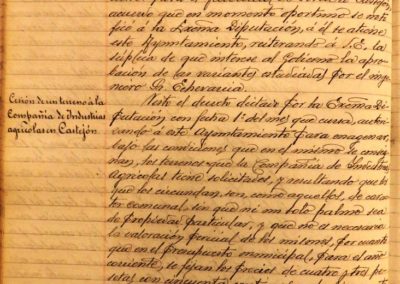 acuerdo que en momento oportuno se noti-
fico á la Excma Diputacion,
este Ayuntamiento, reiterando á S.E. la
súplica de que interese al Gobierno la apro-
bacion de las variantes estudiadas por el inge-
niero Sr. Echevarria.
Cesión de un terreno á la
Compañía de Industrias
agrícolas en Castejón.
Visto el decreto dictado por la Excma Di-
putacion con fecha 1º del mes que cursa, autori-
zando á este Ayuntamiento para enagenar,
bajo las condiciones que en el mismo se consig-
nan, los terrenos que la Compañia de Industrias
Agricolas tiene solicitados, y resultando que los
que los circundan, son, como aquellos, de carac-
ter comunal, sin que ni un solo palmo sea
de propiedad particular, y que no es necesaria
la valoración pericial de los mismos, por cuanto
que en el presupuesto municipal, para el año
corriente, se fijan los precios de cuatro y tres pe-
setas con cincuenta